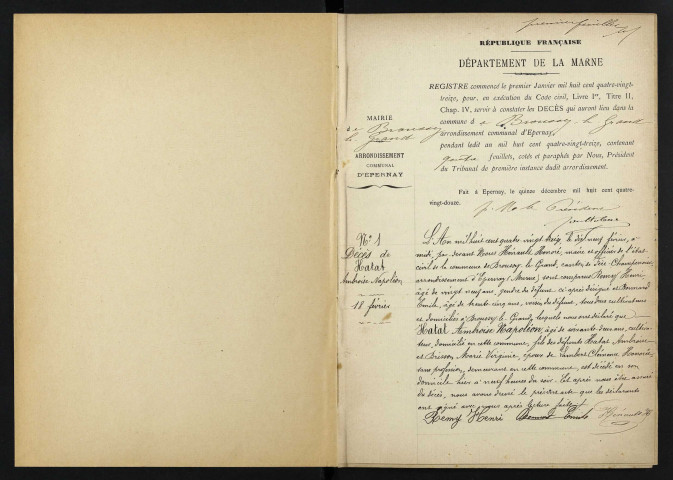 premier feuillet
RÉPUBLIQUE FRANÇAISE
DÉPARTEMENT DE LA MARNE
REGISTRE commencé le premier Janvier mil huit cent quatre-vingt-
treize, pour, en exécution du Code civil, Livre Ier, Titre II,
Chap. IV, servir à constater les DECÈS qui auront lieu dans la
commune d e Broussy le Grand
arrondissement communal d'Epernay,
pendant ledit an mil huit cent quatre-vingt-treize, contenant
feuillets, cotés et paraphés par Nous, Président
du Tribunal de première instance dudit arrondissement.
Fait à Epernay, le quinze décembre mil huit cent quatre-
vingt-douze.
MAIRIE
de Broussy
le Grand
ARRONDISSEMENT
COMMUNAL
D'EPERNAY
p. Mr le Président
N° 1
Décès de
Hatat
Ambroise Napoléon
18 février
L'An mil huit cent quatre vingt treize, le dix neuf février, à
midi, par devant Nous Hérault Honoré, maire et officier de l'état
civil de la commune de Broussy le Grand, canton de Fère Champenoise,
arrondissement d'Epernay (Marne) sont comparus Remy Henri
âgé de vingt neuf ans, gendre du défunt ci après désigné et
Emile, âgé de trente cinq ans, voisin du défunt, tous deux cultivateurs
et domiciliés à Broussy le Grand, lesquels nous ont déclaré que
Hatat Ambroise Napoléon, âgé de soixante ans, cultiva-
teur, domicilié en cette commune, fils des défunts Hatat Ambroise
et Brisson Marie Virginie, époux de Lambert Clémence Honorine,
sans profession, demeurant en cette commune, est décédé en son
domicile hier à neuf heures du soir. Et après nous être assuré
du décès, nous avons dressé le présent acte que les déclarants
ont signé avec nous après lecture faite.
Remy Henri Emile Hérault H